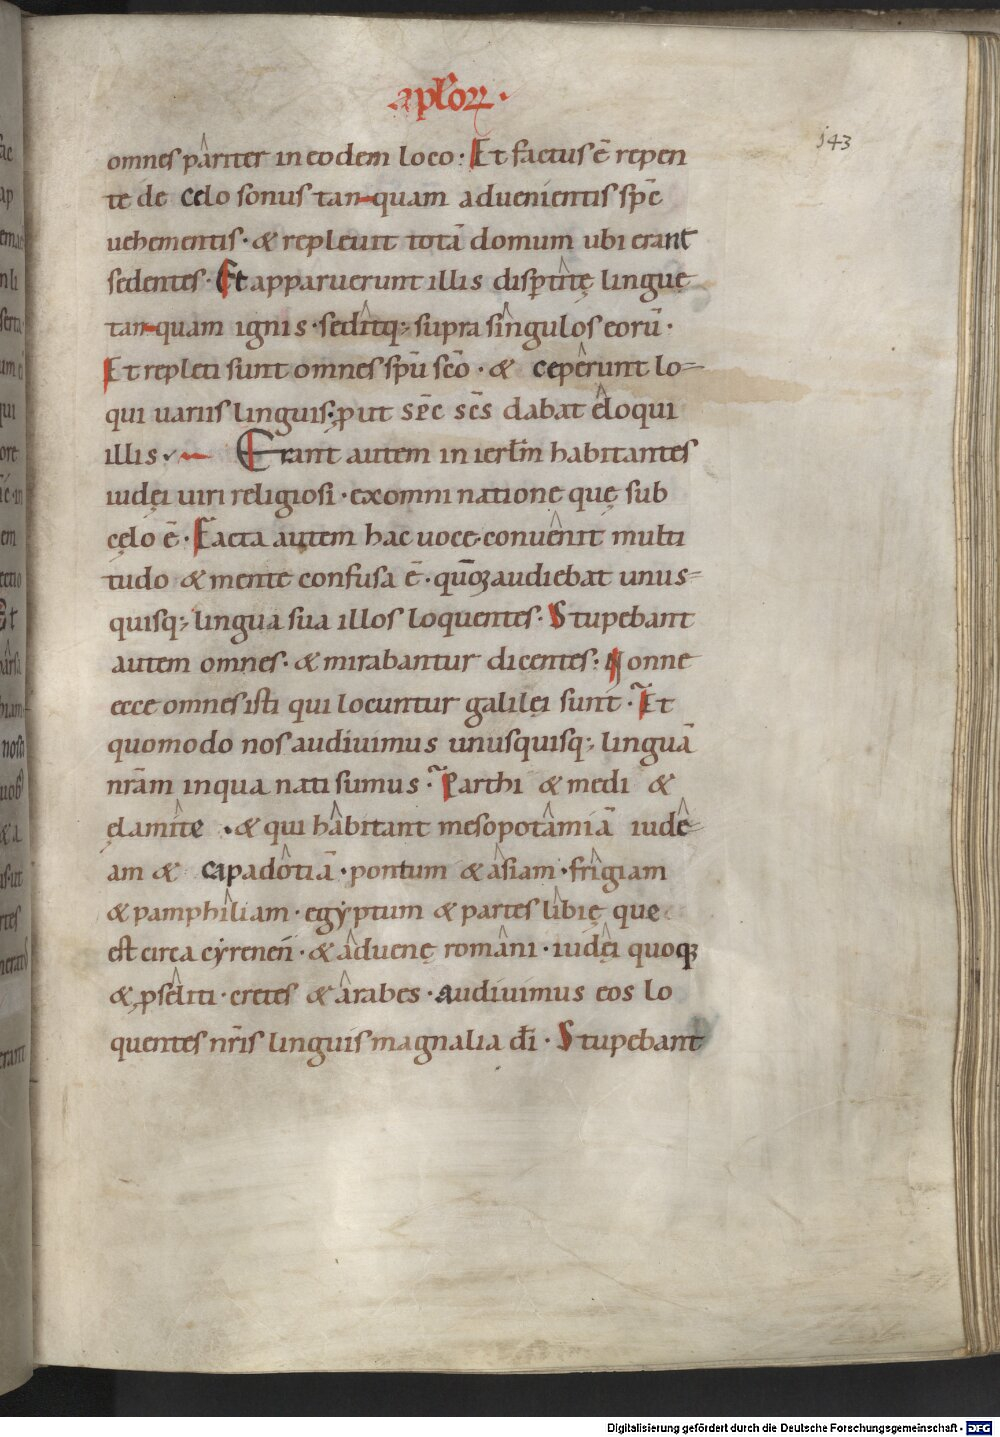 aplōꝝ.
143
omnes pariter in eodem loco· Et factus ē repen
te de celo sonus tanquam aduenientis spc̄
uehementis· & repleuit totā domum ubi erant
sedentes· Et apparuerunt illis dispertitę linguę
tanquam ignis· seditq; supra singulos eorū·
Et repleti sunt omnes spū scō· & ceperunt lo
qui uariis linguis· ꝓut spc̄ scs̄ dabat eloqui
illis· Erant autem in ierlm̄ habitantes
iudęi uiri religiosi· ex omni natione quę sub
cęlo ē· Facta autem hac uoce· conuenit multi
tudo & mente confusa ē· qūo audiebat unus
quisq; lingua sua illos loquentes· Stupebant
autem omnes· & mirabantur dicentes· Nonne
ecce omnes isti qui locuntur galilęi sunt· Et
quomodo nos audiuimus unusquisq; linguā
nrām in qua nati sumus· Parthi & medi &
ęlamite· & qui habitant mesopotamiā iudę
am & capadotiā· pontum & asiam· frigiam
& pamphiliam· egyptum & partes libię que
est circa cyrenen̄· & aduenę romani· iudęi quoqꝫ
& ꝓseliti· cretes & arabes· audiuimus eos lo
quentes nrīs linguis magnalia dī· Stupebant
Digitalisierung gefördert durch die Deutsche Forschungsgemeinschaft - DFG